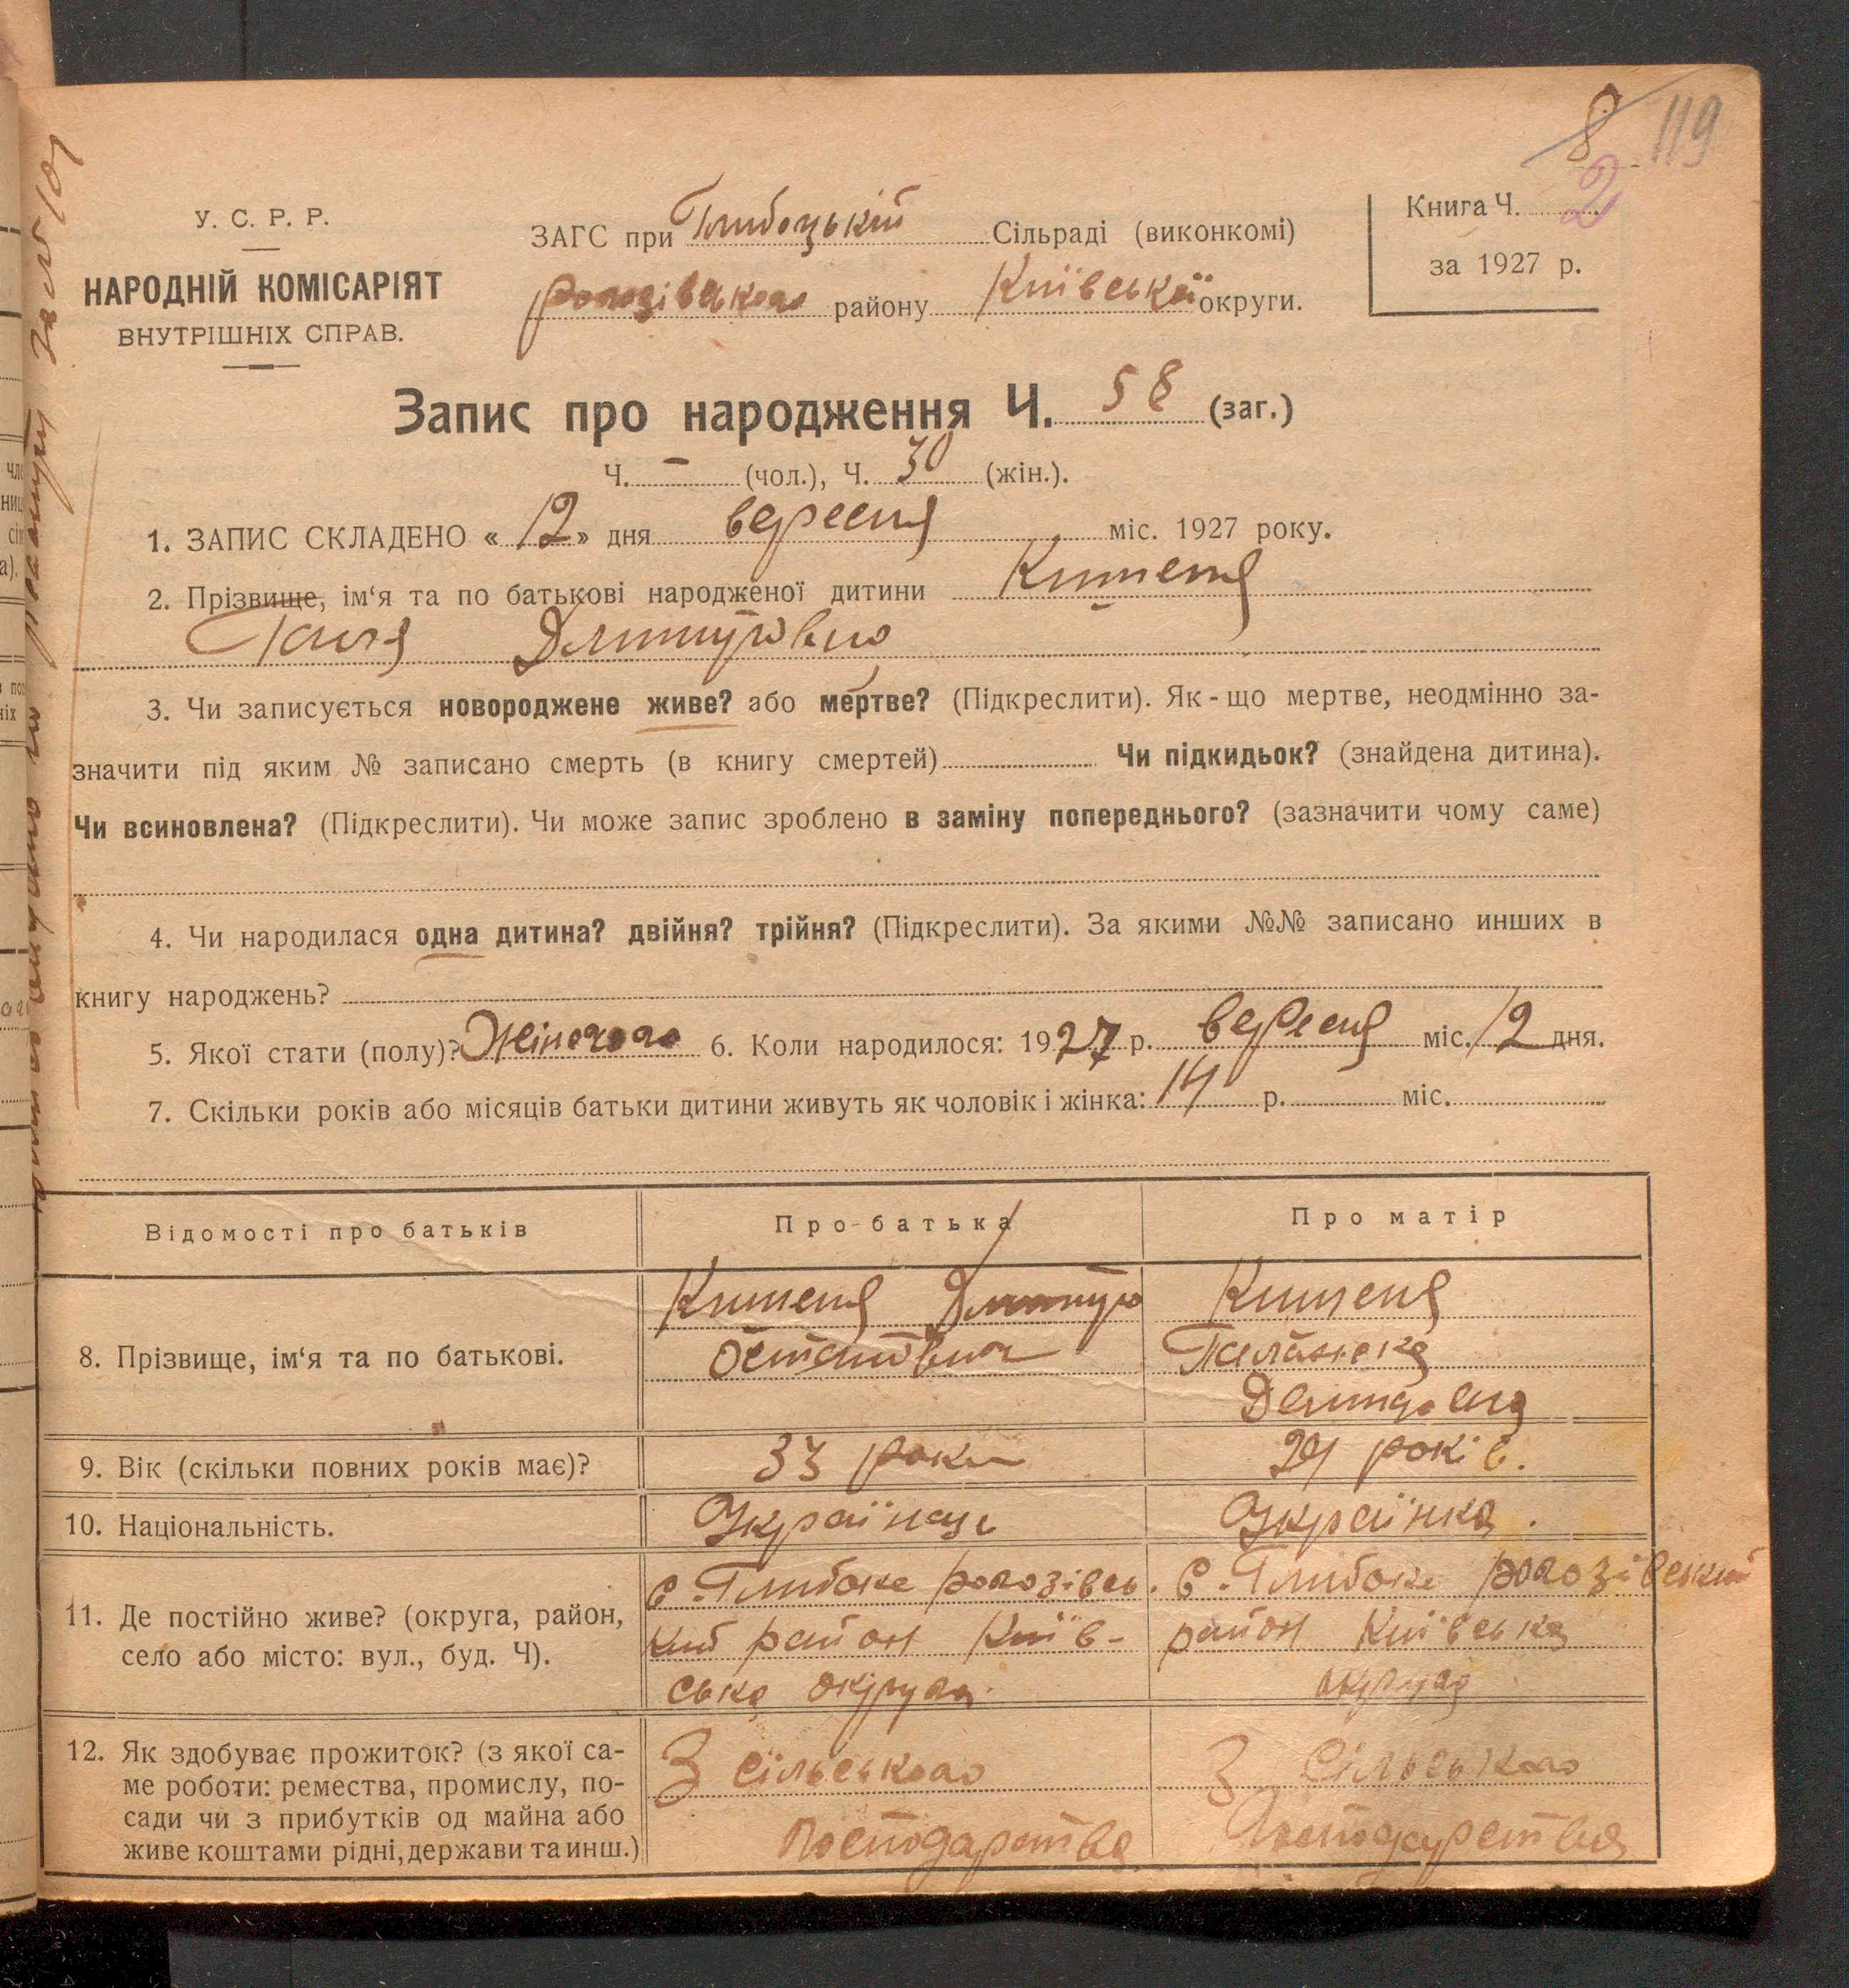 8 119
У. С. Р. Р.
НАРОДНІЙ КОМІСАРІЯТ
ВНУТРІШНІХ СПРАВ.
ЗАГС при Глибоцькій Сільраді (виконкомі)
Рогозівського району Київської округи.
Книга Ч. 2
за 1927 р.
Запис про народження Ч. 58 (заг.)
Ч. – (чол.), Ч. 30 (жін.).
1. ЗАПИС СКЛАДЕНО « 12 » дня вересня міс. 1927 року.
2. Прізвище, ім‘я та по батькові народженої дитини Китеня
Ганя Дмитровна
3. Чи записується новороджене живе? або мертве? (Підкреслити). Як-що мертве, неодмінно за-
значити під яким № записано смерть (в книгу смертей) Чи підкидьок? (знайдена дитина).
Чи всиновлена? (Підкреслити). Чи може запис зроблено в заміну попереднього? (зазначити чому саме)
4. Чи народилася одна дитина? двійня? трійня? (Підкреслити). За якими №№ записано инших в
книгу народжень?
5. Якої стати (полу)? Жіночого 6. Коли народилося: 1927 р. вересня міс. 12 дня.
7. Скільки років або місяців батьки дитини живуть як чоловік і жінка: 14 р. міс.
Відомості про батьків Про батька Про матір
8. Прізвище, ім‘я та по батькові.
Китеня Дмитро
Остапович
Китеня
Палажка
Демидовна
9. Вік (скільки повних років має)? 33 роки 29 років.
10. Національність. Українець Українка.
11. Де постійно живе? (округа, район,
село або місто: вул., буд. Ч).
с. Глибоке Рогозівсь-
кий район Київ-
ська округа.
с. Глибоке Рогозівський
район Київська
округа
12. Як здобуває прожиток? (з якої са-
ме роботи: ремества, промислу, по-
сади чи з прибутків од майна або
живе коштами рідні, держави та инш.)
З сільського
господарства
З сільського
господарства